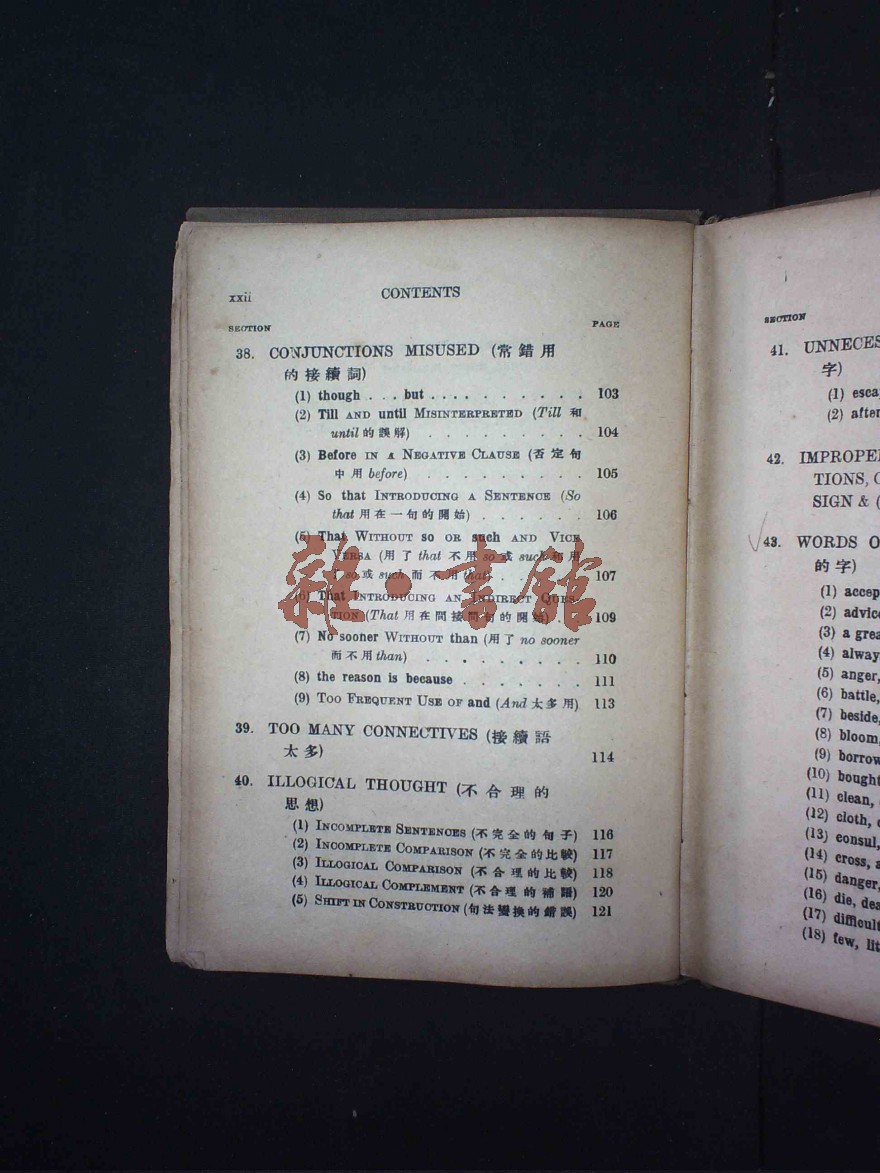 xxii CONTENTS
SECTION PAGE
38. CONJUNCTIONS MISUSED (常錯用
的接續詞)
(1) though . . . but . . . . . . . . . . 103
(2) Till AND until MISINTERPRETED (Till 和
until 的誤解) . . . . . . . . . 104
(3) Before IN A NEGATIVE CLAUSE (否定句
中用 before) . . . . . . . . . 105
(4) So that INTRODUCING A SENTENCE (So
that 用在一句的開始) . . . . . . 106
(5) That WITHOUT so OR such AND VICE
VERSA (用了 that 不用 so 或 such 和用
了 so 或 such 而不用 that) . . . . 107
(6) That INTRODUCING AN INDIRECT QUES-
TION (That 用在間接問句的開始) . . 109
(7) No sooner WITHOUT than (用了 no sooner
而不用 than) . . . . . . . . . 110
(8) the reason is because . . . . . . . 111
(9) TOO FREQUENT USE OF and (And 太多用) 113
39. TOO MANY CONNECTIVES (接續語
太多) 114
40. ILLOGICAL THOUGHT (不合理的
思想)
(1) INCOMPLETE SENTENCES (不完全的句子) 116
(2) INCOMPLETE COMPARISON (不完全的比較) 117
(3) ILLOGICAL COMPARISON (不合理的比較) 118
(4) ILLOGICAL COMPLEMENT (不合理的補語) 120
(5) SHIFT IN CONSTRUCTION (句法變換的錯誤) 121
雜·書館
SECTION
41. UNNECES
字)
(1) esca
(2) after
42. IMPROPE
TIONS,
SIGN & (
43. WORDS O
的字)
(1) accep
(2) advic
(3) a grea
(4) alway
(5) anger,
(6) battle,
(7) beside,
(8) bloom,
(9) borrow
(10) bought
(11) clean,
(12) cloth,
(13) consul,
(14) cross, a
(15) danger,
(16) die, dea
(17) difficult
(18) few, lit